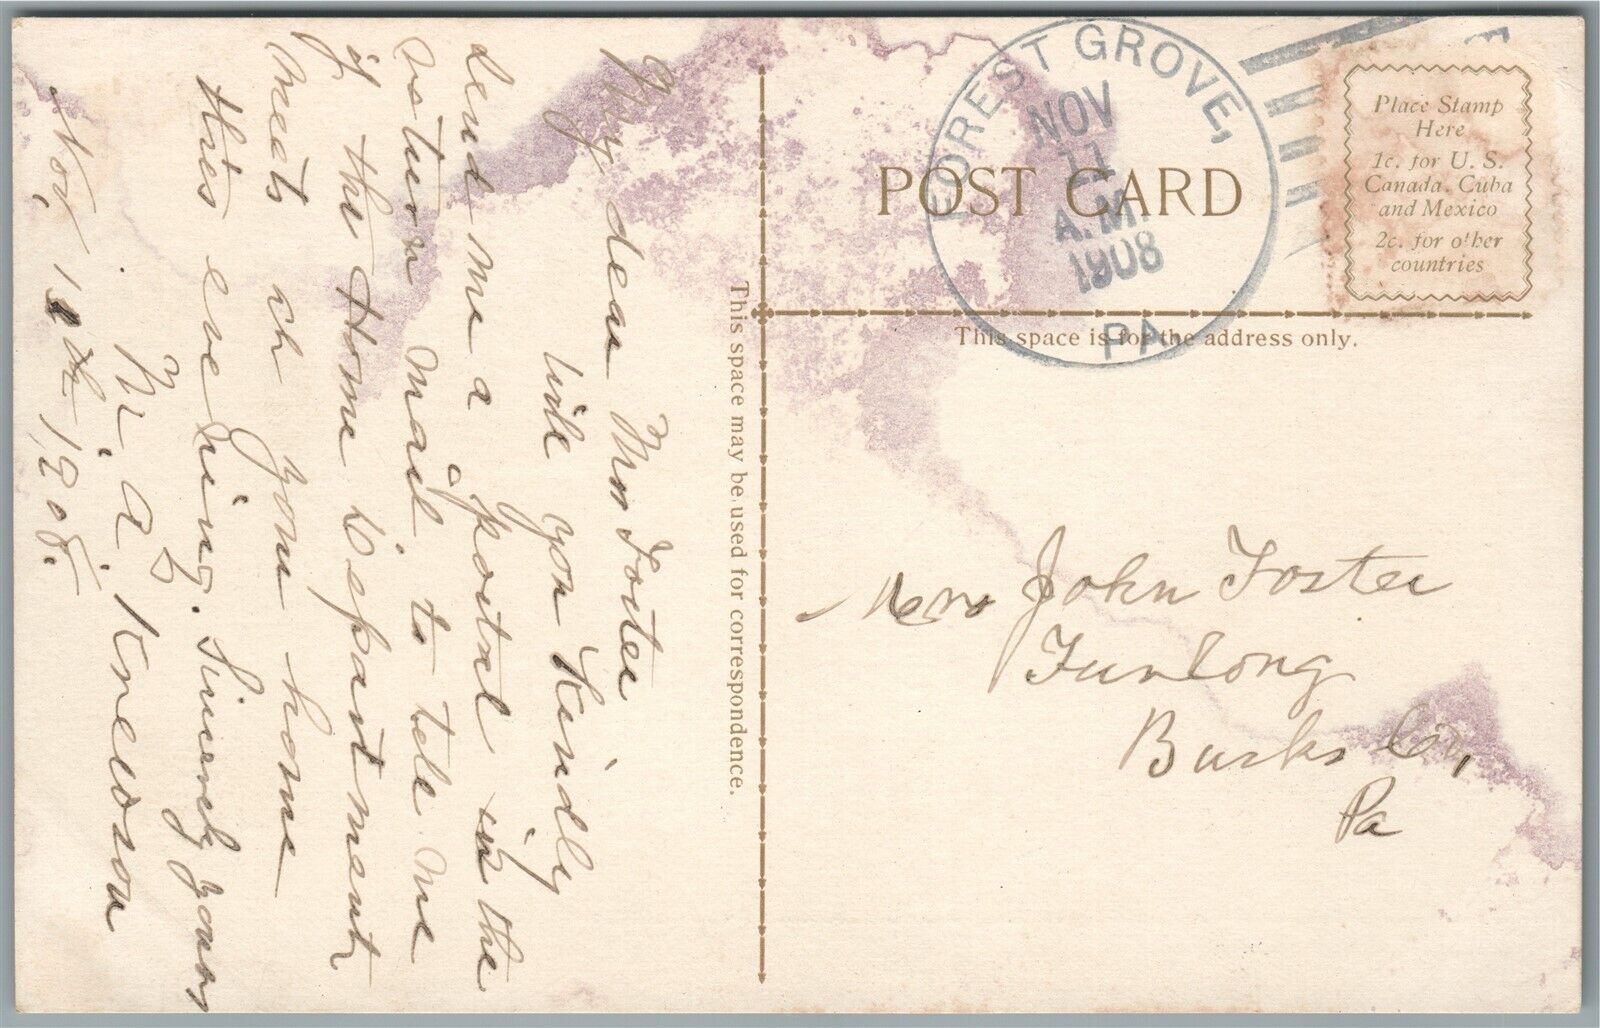 My dear Mrs Foster
Will you Kindly
send me a postal in the
return mail to tell me
if the Home Department
meets at your home
this evening. Sincerely yours
M. A.
Nov, 11th 1908.
This space may be used for correspondence.
POST CARD
FOREST GROVE,
NOV
11
A.M
1908
PA
Place Stamp
Here
1c. for U. S.
Canada, Cuba
and Mexico
2c. for other
countries
This space is for the address only.
Mrs John Foster
Furlong
Bucks Co,
Pa